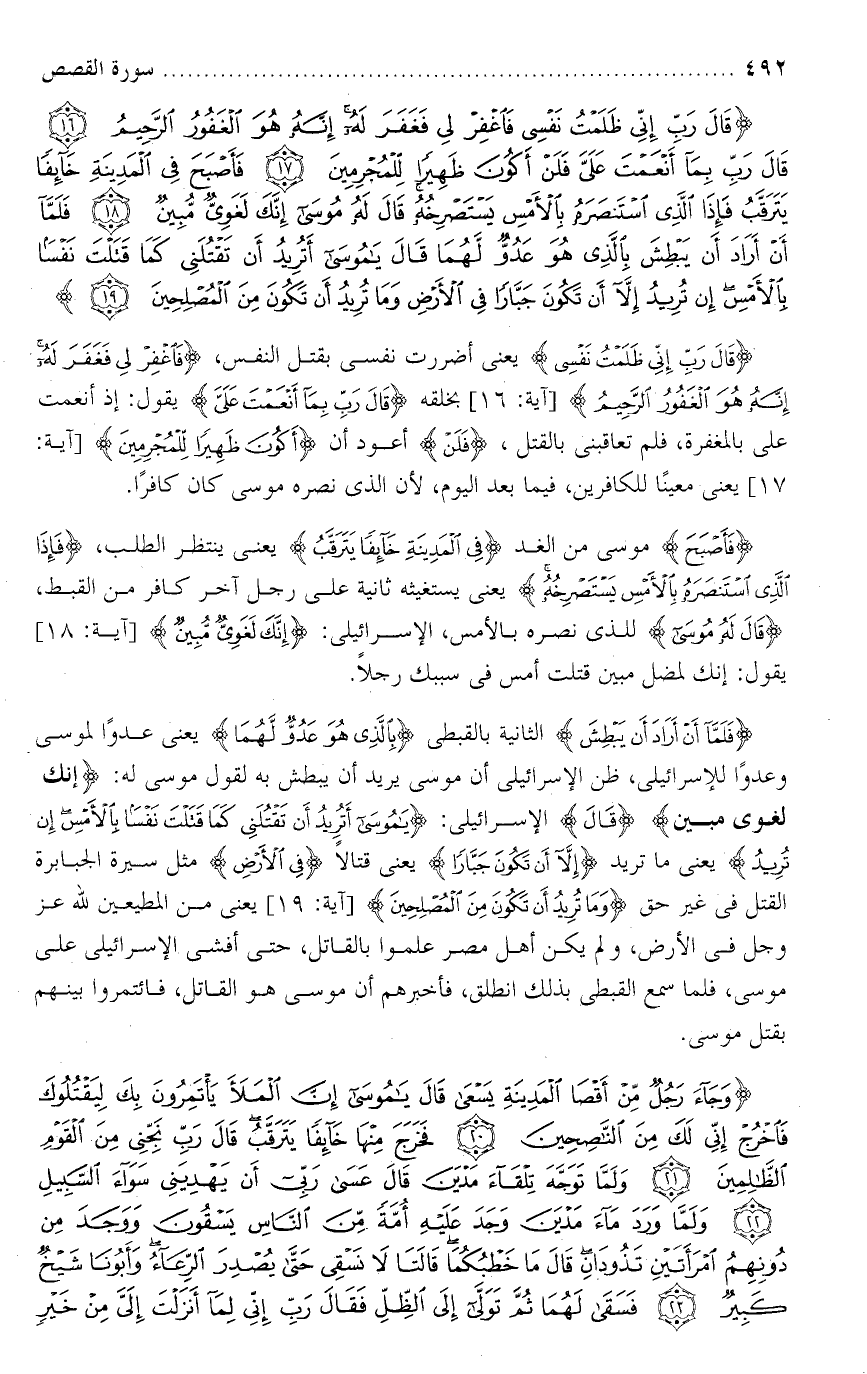 ٤٩٢ ........................................................................ سورة القصص
﴿قَالَ رَبِّ إِنِّي ظَلَمْتُ نَفْسِى فَٱغْفِرْ لِى فَغَفَرَ لَهُۥٓ ۚ إِنَّهُۥ هُوَ ٱلْغَفُورُ ٱلرَّحِيمُ ١٦
قَالَ رَبِّ بِمَآ أَنْعَمْتَ عَلَىَّ فَلَنْ أَكُونَ ظَهِيرًا لِّلْمُجْرِمِينَ ١٧ فَأَصْبَحَ فِى ٱلْمَدِينَةِ خَآئِفًا
يَتَرَقَّبُ فَإِذَا ٱلَّذِى ٱسْتَنصَرَهُۥ بِٱلْأَمْسِ يَسْتَصْرِخُهُۥ ۚ قَالَ لَهُۥ مُوسَىٰٓ إِنَّكَ لَغَوِىٌّ مُّبِينٌ ١٨ فَلَمَّآ
أَنْ أَرَادَ أَن يَبْطِشَ بِٱلَّذِى هُوَ عَدُوٌّ لَّهُمَا قَالَ يَـٰمُوسَىٰٓ أَتُرِيدُ أَن تَقْتُلَنِى كَمَا قَتَلْتَ نَفْسًۢا
بِٱلْأَمْسِ ۖ إِن تُرِيدُ إِلَّآ أَن تَكُونَ جَبَّارًا فِى ٱلْأَرْضِ وَمَا تُرِيدُ أَن تَكُونَ مِنَ ٱلْمُصْلِحِينَ ١٩ ﴾
﴿قَالَ رَبِّ إِنِّي ظَلَمْتُ نَفْسِى﴾ يعنى أضررت نفسى بقتل النفس، ﴿فَٱغْفِرْ لِى فَغَفَرَ لَهُۥٓ ۚ
إِنَّهُۥ هُوَ ٱلْغَفُورُ ٱلرَّحِيمُ﴾ [آية: ١٦] بخلقه ﴿قَالَ رَبِّ بِمَآ أَنْعَمْتَ عَلَىَّ﴾ يقول: إذ أنعمت
على بالمغفرة، فلم تعاقبنى بالقتل ، ﴿فَلَنْ﴾ أعود أن ﴿أَكُونَ ظَهِيرًا لِّلْمُجْرِمِينَ﴾ [آية:
١٧] يعنى معينًا للكافرين، فيما بعد اليوم، لأن الذى نصره موسى كان كافرًا.
﴿فَأَصْبَحَ﴾ موسى من الغد ﴿فِى ٱلْمَدِينَةِ خَآئِفًا يَتَرَقَّبُ﴾ يعنى ينتظر الطلب، ﴿فَإِذَا
ٱلَّذِى ٱسْتَنصَرَهُۥ بِٱلْأَمْسِ يَسْتَصْرِخُهُۥ ۚ﴾ يعنى يستغيثه ثانية على رجل آخر كافر من القبط،
﴿قَالَ لَهُۥ مُوسَىٰٓ﴾ للذى نصره بالأمس، الإسرائيلى: ﴿إِنَّكَ لَغَوِىٌّ مُّبِينٌ﴾ [آية: ١٨]
يقول: إنك لمضل مبين قتلت أمس فى سببك رجلاً.
﴿فَلَمَّآ أَنْ أَرَادَ أَن يَبْطِشَ﴾ الثانية بالقبطى ﴿بِٱلَّذِى هُوَ عَدُوٌّ لَّهُمَا﴾ يعنى عدوًا لموسى
وعدوًا للإسرائيلى، ظن الإسرائيلى أن موسى يريد أن يبطش به لقول موسى له: ﴿إنك
لغوى مبين﴾ ﴿قَالَ﴾ الإسرائيلى: ﴿يَـٰمُوسَىٰٓ أَتُرِيدُ أَن تَقْتُلَنِى كَمَا قَتَلْتَ نَفْسًۢا بِٱلْأَمْسِ ۖ إِن
تُرِيدُ﴾ يعنى ما تريد ﴿إِلَّآ أَن تَكُونَ جَبَّارًا﴾ يعنى قتالاً ﴿فِى ٱلْأَرْضِ﴾ مثل سيرة الجبابرة
القتل فى غير حق ﴿وَمَا تُرِيدُ أَن تَكُونَ مِنَ ٱلْمُصْلِحِينَ﴾ [آية: ١٩] يعنى من المطيعين لله عز
وجل فى الأرض، و لم يكن أهل مصر علموا بالقاتل، حتى أفشى الإسرائيلى على
موسى، فلما سمع القبطى بذلك انطلق، فأخبرهم أن موسى هو القاتل، فائتمروا بينهم
بقتل موسى.
﴿وَجَآءَ رَجُلٌ مِّنْ أَقْصَا ٱلْمَدِينَةِ يَسْعَىٰ قَالَ يَـٰمُوسَىٰٓ إِنَّ ٱلْمَلَأَ يَأْتَمِرُونَ بِكَ لِيَقْتُلُوكَ
فَٱخْرُجْ إِنِّى لَكَ مِنَ ٱلنَّـٰصِحِينَ ٢٠ فَخَرَجَ مِنْهَا خَآئِفًا يَتَرَقَّبُ ۖ قَالَ رَبِّ نَجِّنِى مِنَ ٱلْقَوْمِ
ٱلظَّـٰلِمِينَ ٢١ وَلَمَّا تَوَجَّهَ تِلْقَآءَ مَدْيَنَ قَالَ عَسَىٰ رَبِّىٓ أَن يَهْدِيَنِى سَوَآءَ ٱلسَّبِيلِ
٢٢ وَلَمَّا وَرَدَ مَآءَ مَدْيَنَ وَجَدَ عَلَيْهِ أُمَّةً مِّنَ ٱلنَّاسِ يَسْقُونَ وَوَجَدَ مِن
دُونِهِمُ ٱمْرَأَتَيْنِ تَذُودَانِ ۖ قَالَ مَا خَطْبُكُمَا ۖ قَالَتَا لَا نَسْقِى حَتَّىٰ يُصْدِرَ ٱلرِّعَآءُ ۖ وَأَبُونَا شَيْخٌ
كَبِيرٌ ٢٣ فَسَقَىٰ لَهُمَا ثُمَّ تَوَلَّىٰٓ إِلَى ٱلظِّلِّ فَقَالَ رَبِّ إِنِّى لِمَآ أَنزَلْتَ إِلَىَّ مِنْ خَيْرٍ